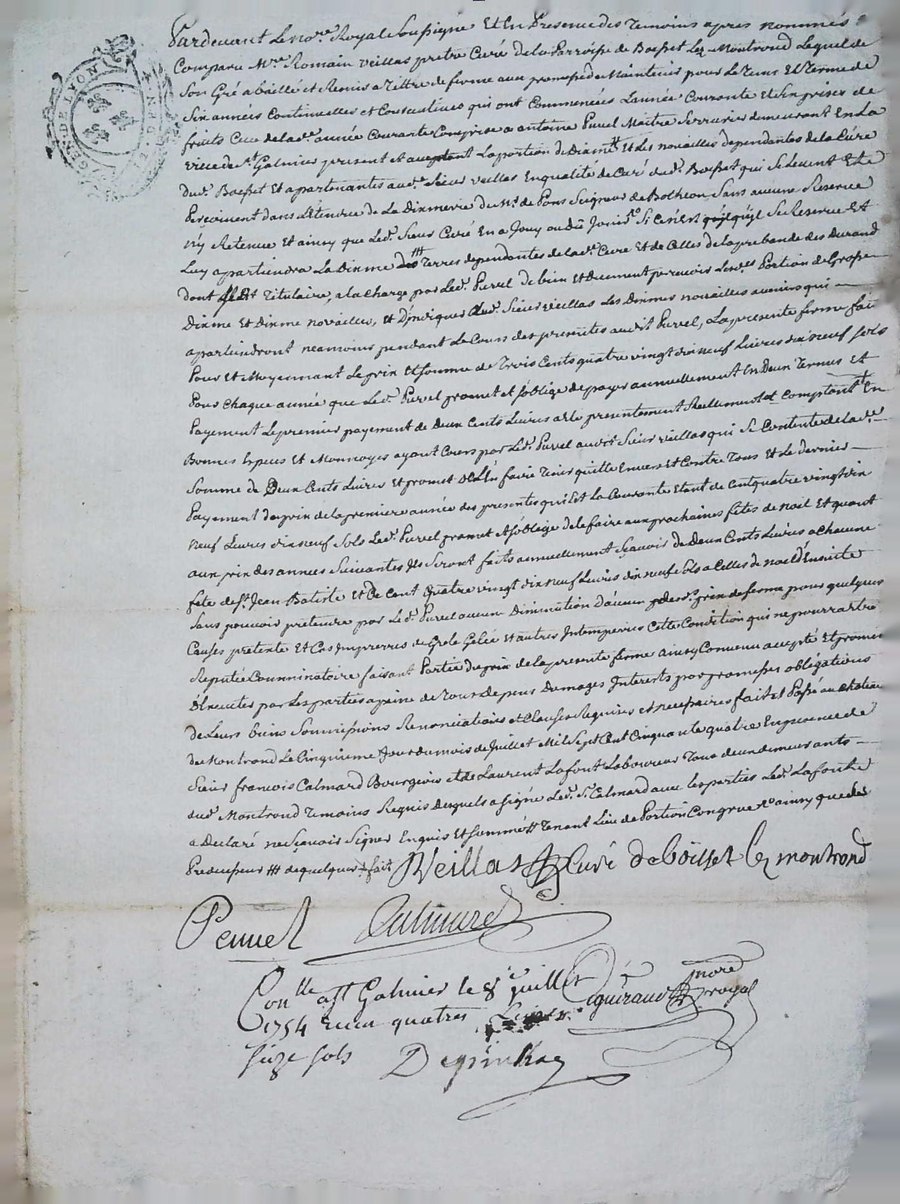 GEN. DE LYON
Pardevant Le no.re Royal Soussigné Et En Presence des Temoins apres nommés
Comparu M.re Romain veillas pretre Curé de la Parroisse de Boesset Lez Montrond Lequel de
Son Gré a baillé et Remis a Tittre de ferme aux promesses de Maintenir pour Le Tems Et Terme de
Six années Continuelles et Consecutives qui ont Commencées L'année Courante Et Six prises de
fruits Celle de la d.e année Courante Comprise a antoine Purel Maitre Serrurier demeurant En La
ville de S.t Galmier present et acceptant La portion de Dixme Et des novailles dependantes de la Cure
dud. Boesset Et apartenantes aud. Sieur veillas En qualité de Curé dud. Boesset qui Se Levent Et Se
Perçoivent dans L'étendue de La Dixmerie du M.is de Pons Seigneur de Botheon Sans aucune Reserve
ny Retenue Et ainsy que Led. Sieur Curé En a Jouy ou dû Jouir Si Ce n'est qu'il Se Reserve Et
Luy apartiendra La Dixme des Terres dependantes de lad. Cure Et de Celles de la prebande des Durand
dont Il Est Titulaire, a la Charge par Led. Purel de bien et Deument percevoir Lesd. Portion de Grosse
Dixme Et Dixme novailles, et D'indiquer aud. Sieur Veillas Les Dixmes novailles a venir qui
apartiendront neamoins pendant Le Cours des presentes audit Purel, La presente ferme fait
Pour Et Moyennant Le prix Et Somme de Trois Cents quatre vingt dix neuf Livres dix neuf Sols
Pour Chaque année que Led. Purel promet et s'oblige de payer annuellement En Deux Termes Et
Payement Le premier payement de Deux Cents Livres a Eté presentement Reellement et Comptant En
Bonnes Especes Et Monnoyes ayant Cours par Led. Purel aud. Sieur veillas qui Se Contente de lad.
Somme de Deux Cents Livres et promet de L'En faire Tenir quitte Envers Et Contre Tous Et Le dernier
Payement du prix de la premiere année des presentes qui Est La Courante Etant de Cent quatre vingt dix
neuf Livres dix neuf Sols Led. Purel promet et s'oblige de le faire aux prochaines fêtes de noël Et quant
aux prix des années Suivantes Ils Seront faits annuellement Sçavoir de Deux Cents Livres a Chacune
fête de S.t Jean Batiste et De Cent Quatre vingt dix neuf Livres dix neuf Sols a Celles de noël D'Ensuite
Sans pouvoir pretendre par Led. Purel aucun Diminution d'aucun prix de ferme pour quelques
Causes pretexte Et Cas Impreveus de Grele Gelée et autres Intemperies Cette Condition qui ne pourra être
Reputée Comminatoire faisant Partie du prix de la presente ferme ainsy Convenu accepté Et promis
D'Executer par Les parties a peine de Tous Depens Domages Interests par promesses obligations
de Leurs biens Soumissions Renonciations et Clauses Requises et necessaires fait et Passé au Chateau
du Montrond Le Cinquieme Jour du mois de Juillet Mil Sept Cent Cinquante quatre En presence de
Sieur francois Calmard Bourgeois et de Laurent Lafont Laboureur Tous deux demeurants
aud. Montrond Temoins Requis desquels a Signé Led. S.r Calmard avec les parties Led. Lafont
a Declaré ne Sçavoir Signer Enquis Et Sommé Tenant Lieu de Portion Congrue ainsy que Ses
Predecesseur de quelques fait
Veillas Curé de boisset lez montrond
Peuuel Calmard
Con.lle a S.t Galmier le 8.e Juillet
1754 Recu quatres Livres
Seize Sols